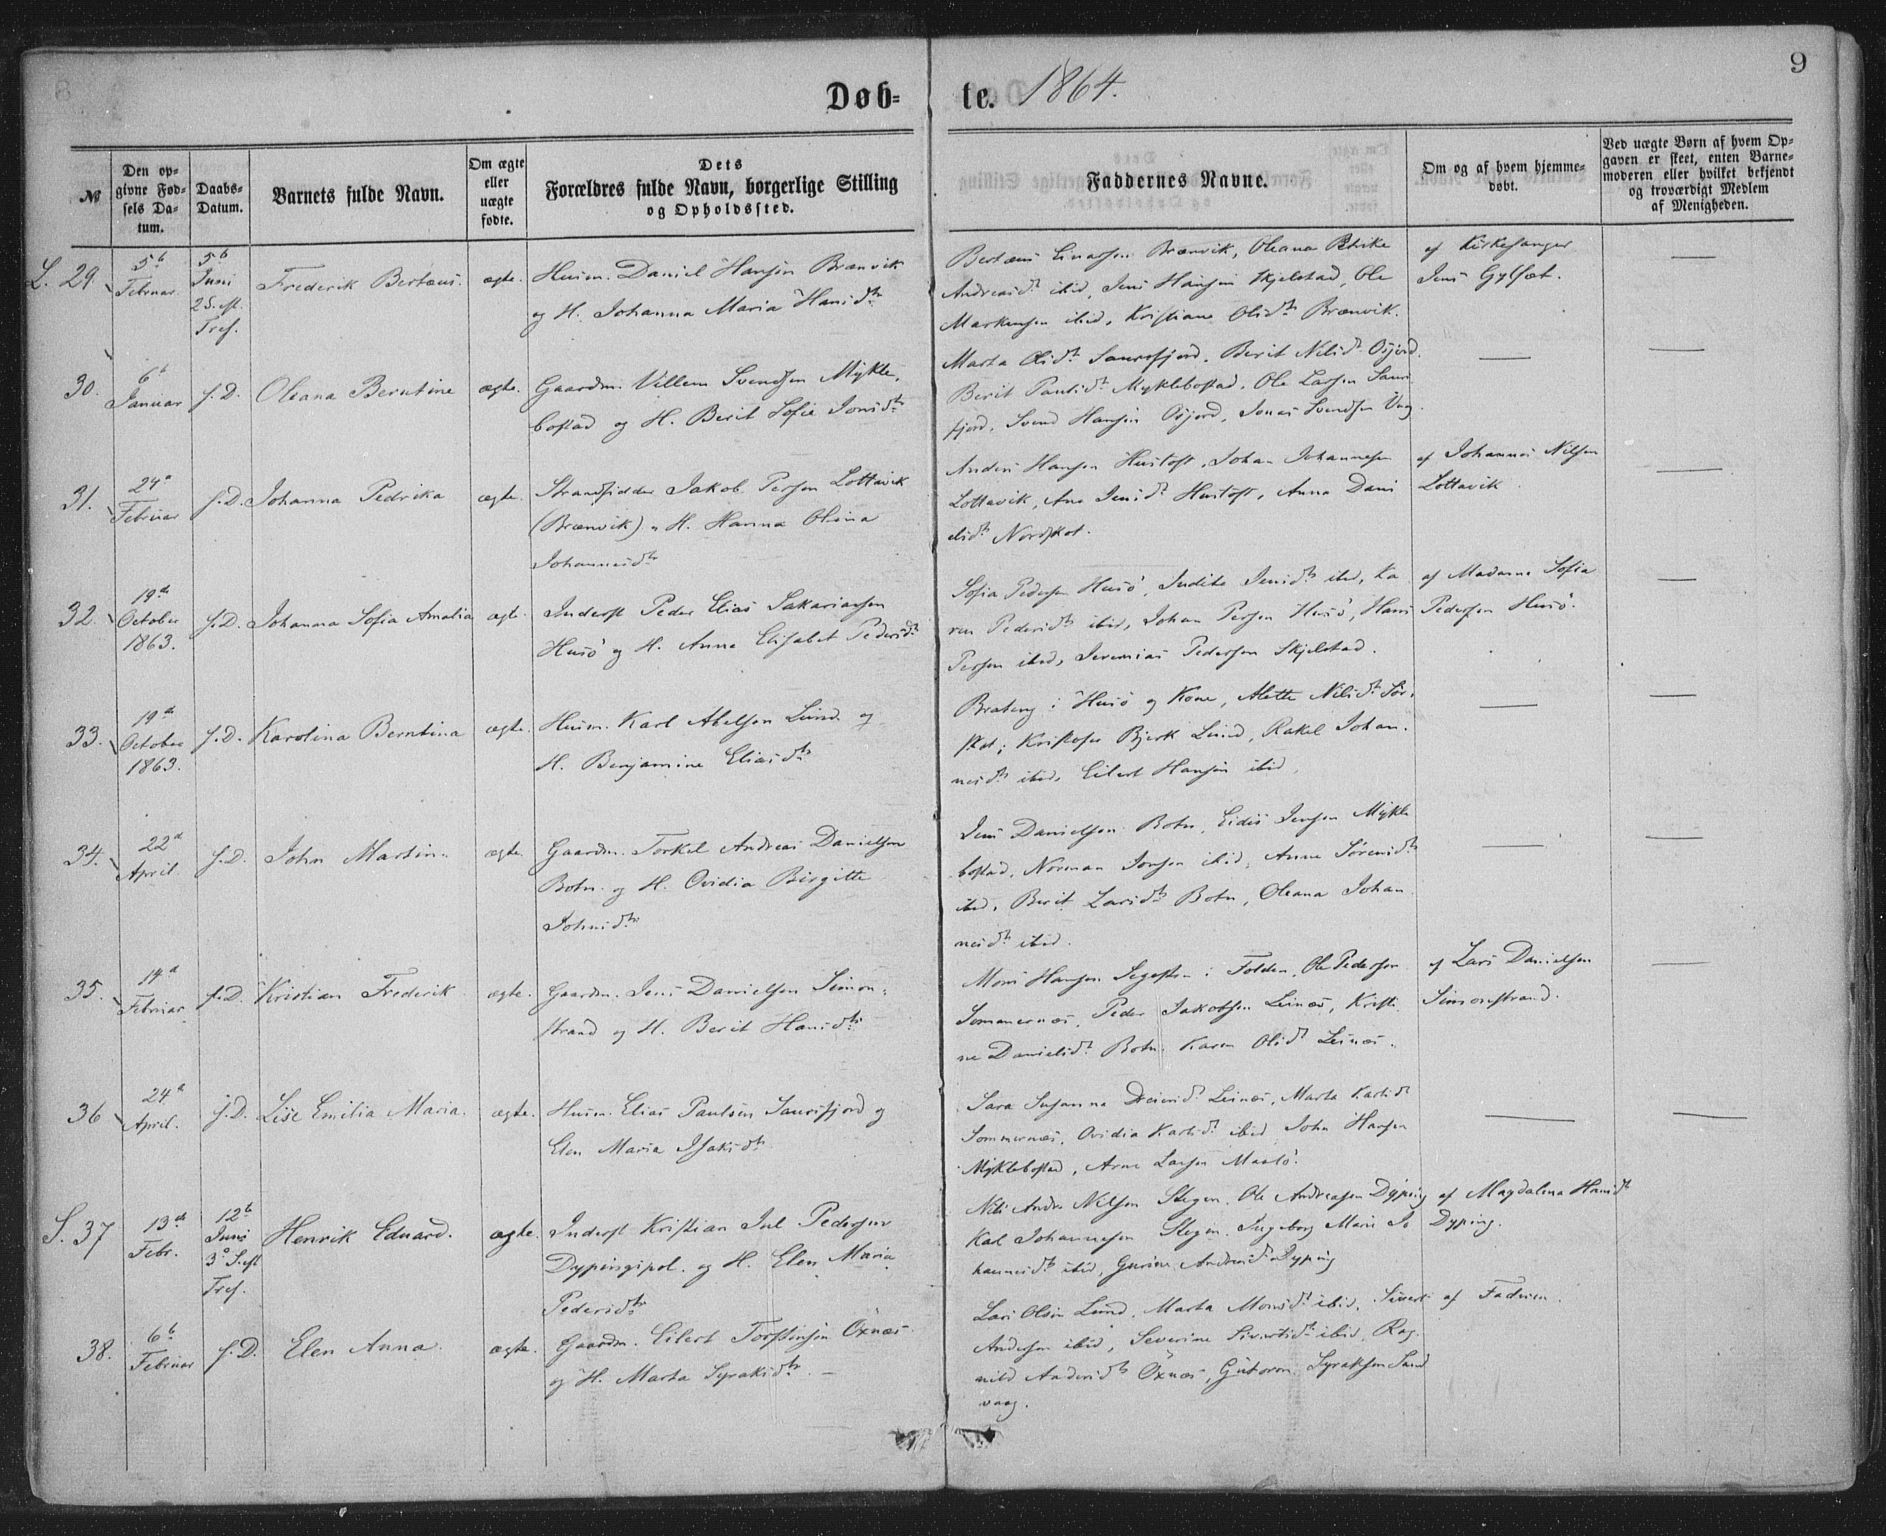 9
Døb= te. 1864.
№
Den op-
givne Fød-
sels Da-
tum.
Daabs-
Datum.
Barnets fulde Navn.
Om ægte
eller
uægte
fødte.
Dets
Forældres fulde Navn, borgerlige Stilling
og Opholdssted.
Faddernes Navne.
Om og af hvem hjemme-
døbt.
Ved uægte Børn af hvem Op-
gaven er skeet, enten Barne-
moderen eller hvilket bekjendt
og troværdigt Medlem
af Menigheden.
L. 29.
5te
Februar
5te
Juni
2 S. eft.
Tref.
Frederik Bertæus.
ægte.
Husm. Daniel Hansen Brænvik
og H. Johanna Maria Hansdtr
Bertæus Brænvik, Oleana
Andreasdt ibid, Jens Hansen Skjelstad, Ole
Markussen ibid, Kristiane Olsdtr Brænvik.
af Kirkesanger
Jens Gylseth.
30.
6te
Januar
s. D.
Oleana Berntine
ægte.
Gaardm. Villem Svendsen Mykle-
bostad og H. Berit Sofie Jonsdtr
Marta Olsdt Saursfjord, Berit Nilsdt Osjord.
Berit Paulsdt Myklebostad, Ole Larsen Saurs
fjord, Svend Hansen Osjord, Jonas Svendsen
31.
24de
Februar
s. D.
Johanna Pedrika
ægte.
Strandsidder Jakob Persen Lottavik
(Brænvik) og H. Hanna Olina
Johannesdtr
Anders Hansen Hustoft, Johan Johannesen
Lottavik, Ane Jensdt Hustoft, Anna Dani
elsdtr Nordskot.
af Johannes Nilsen
Lottavik
32.
19de
October
1863.
s. D.
Johanna Sofia Amalia
ægte.
Inderst Peder Elias Sakariassen
Husö og H. Anne Elisabet Pedersdtr
Sofia Pedersen Husö, Judite Jensdtr ibid, Ka
ren Pedersdtr ibid, Johan Persen Husö, Hans
Persen ibid, Jeremias Pedersen Skjelstad.
af Madame Sofia
Pedersen Husö.
33.
19de
October
1863.
s. D.
Karolina Berntina
ægte.
Husm. Karl Abelsen Lund og
H. Benjamine Eliasdtr
i Husö og Kone, Alette Nilsdt Sör-
skot, Kristofer Bjerk Lund, Rakel Johan-
nesdtr ibid, Eilert Hansen ibid,
34.
22de
April
s. D.
John Martin.
ægte.
Gaardm. Torkel Andreas Danielsen
Botn og H. Ovidia Birgitte
Johnsdtr
Jens Danielsen Botn, Eidis Jensen Mykle
bostad, Norman Jonsen ibid, Anne Sörensdtr
ibid, Berit Larsdtr Botn, Oleana Johan
nesdt ibid.
35.
14de
Februar
s. D.
Kristian Frederik
ægte.
Gaardm. Jens Danielsen Simon-
strand og H. Berit Hansdtr
Mons Hansen i Folden, Ole Pedersen
Sommernæs, Peder Jakobsen Leinæs, Kristi
ne Danielsdt Botn, Karen Olsdt Leinæs.
af Lars Danielsen
Simonstrand.
36
24de
April.
s. D.
Lise Emilia Maria.
ægte.
Husm. Elias Paulsen Saursfjord og
Elen Maria Isaksdtr
Sara Susanna Leinæs, Marta Karlsdt
Sommernæs, Ovidia Karlsdt ibid, John Hansen
Myklebostad, Arne Larsen Maalö.
S. 37
13de
Febr.
12te
Juni
3 S. eft
Tref.
Henrik Eduard.
ægte.
Inderst Kristian Jul Pedersen
Dypingpol. og H. Elen Maria
Pedersdtr
Nils Andr. Nilsen Stegen. Ole Andreassen Dyping
Karl Johannesen Stegen. Ingeborg Marie Jo
hannesdtr ibid, Gurine Andersdt Dyping
af Magdalena Hansdt
Dyping.
38.
6te
Februar
s. D.
Elen Anna.
ægte.
Gaardm. Eilert Torstensen Öxnæs
og H. Marta Syraksdtr.
Lars Olsen Lund, Marta Monsdt ibid, Sivert
Andersen ibid, Severine Sivertsdt ibid, Rag-
nild Andersdtr Öxnæs, Guttorm Syraksen Sand
vaag.
af Faderen.